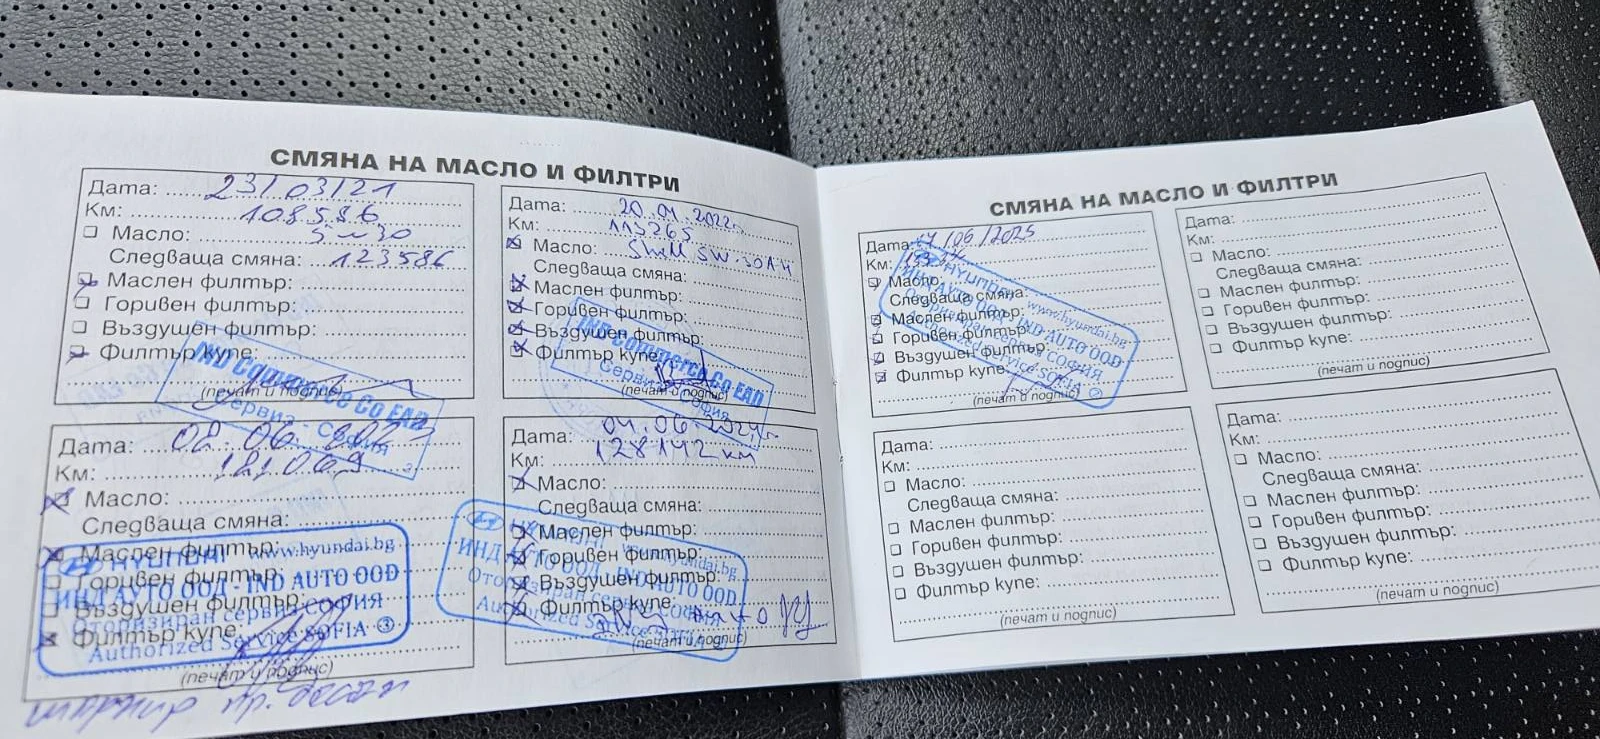 СМЯНА НА МАСЛО И ФИЛТРИ
Дата: 23/03/21
Км: 108586
Масло: 5w30
Следваща смяна: 123586
Маслен филтър:
Горивен филтър:
Въздушен филтър:
Филтър купе:
(печат и подпис)
IND Commerce Co EAD
Сервиз - София
Дата: 20.01.2022г.
Км: 113265
Масло: Shell 5W-30A4
Следваща смяна:
Маслен филтър:
Горивен филтър:
Въздушен филтър:
Филтър купе:
(печат и подпис)
IND Commerce Co EAD
Сервиз София
Дата: 02.06.
Км: 121.069
Масло:
Следваща смяна:
Маслен филтър:
Горивен филтър:
Въздушен филтър:
Филтър купе:
(печат и подпис)
HYUNDAI www.hyundai.bg
ИНД АУТО ООД - IND AUTO OOD
Оторизиран сервиз СОФИЯ
Authorized Service SOFIA 3
Дата: 04.06.2024г.
Км: 128142 км
Масло:
Следваща смяна:
Маслен филтър:
Горивен филтър:
Въздушен филтър:
Филтър купе:
(печат и подпис)
www.hyundai.bg
ИНД АУТО ООД - IND AUTO OOD
Оторизиран сервиз СОФИЯ
Authorized Service SOFIA
СМЯНА НА МАСЛО И ФИЛТРИ
Дата: /06/2025
Км:
Масло:
Следваща смяна:
Маслен филтър:
Горивен филтър:
Въздушен филтър:
Филтър купе:
(печат и подпис)
HYUNDAI www.hyundai.bg
ИНД АУТО ООД - IND AUTO OOD
Оторизиран сервиз СОФИЯ
Authorized Service SOFIA
Дата:
Км:
Масло:
Следваща смяна:
Маслен филтър:
Горивен филтър:
Въздушен филтър:
Филтър купе:
(печат и подпис)
Дата:
Км:
Масло:
Следваща смяна:
Маслен филтър:
Горивен филтър:
Въздушен филтър:
Филтър купе:
(печат и подпис)
Дата:
Км:
Масло:
Следваща смяна:
Маслен филтър:
Горивен филтър:
Въздушен филтър:
Филтър купе:
(печат и подпис)